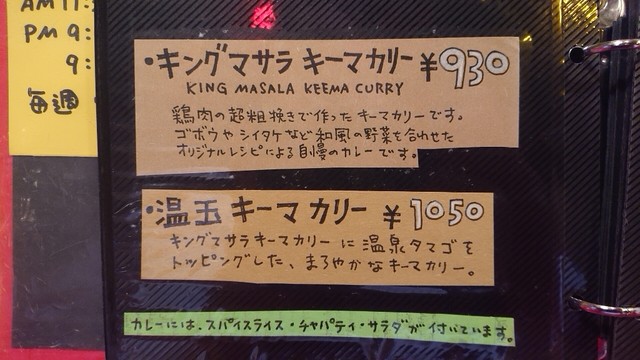 AM 11:
PM 9:
9:
毎週
・キングマサラ キーマカリー ¥930
KING MASALA KEEMA CURRY
鶏肉の超粗挽きで作ったキーマカリーです。
ゴボウやシイタケなど和風の野菜を合わせた
オリジナルレシピによる自慢のカレーです。
・温玉 キーマ カリー ¥1050
キングマサラキーマカリーに温泉タマゴを
トッピングした、まろやかなキーマカリー。
カレーには、スパイスライス・チャパティ・サラダが付いています。